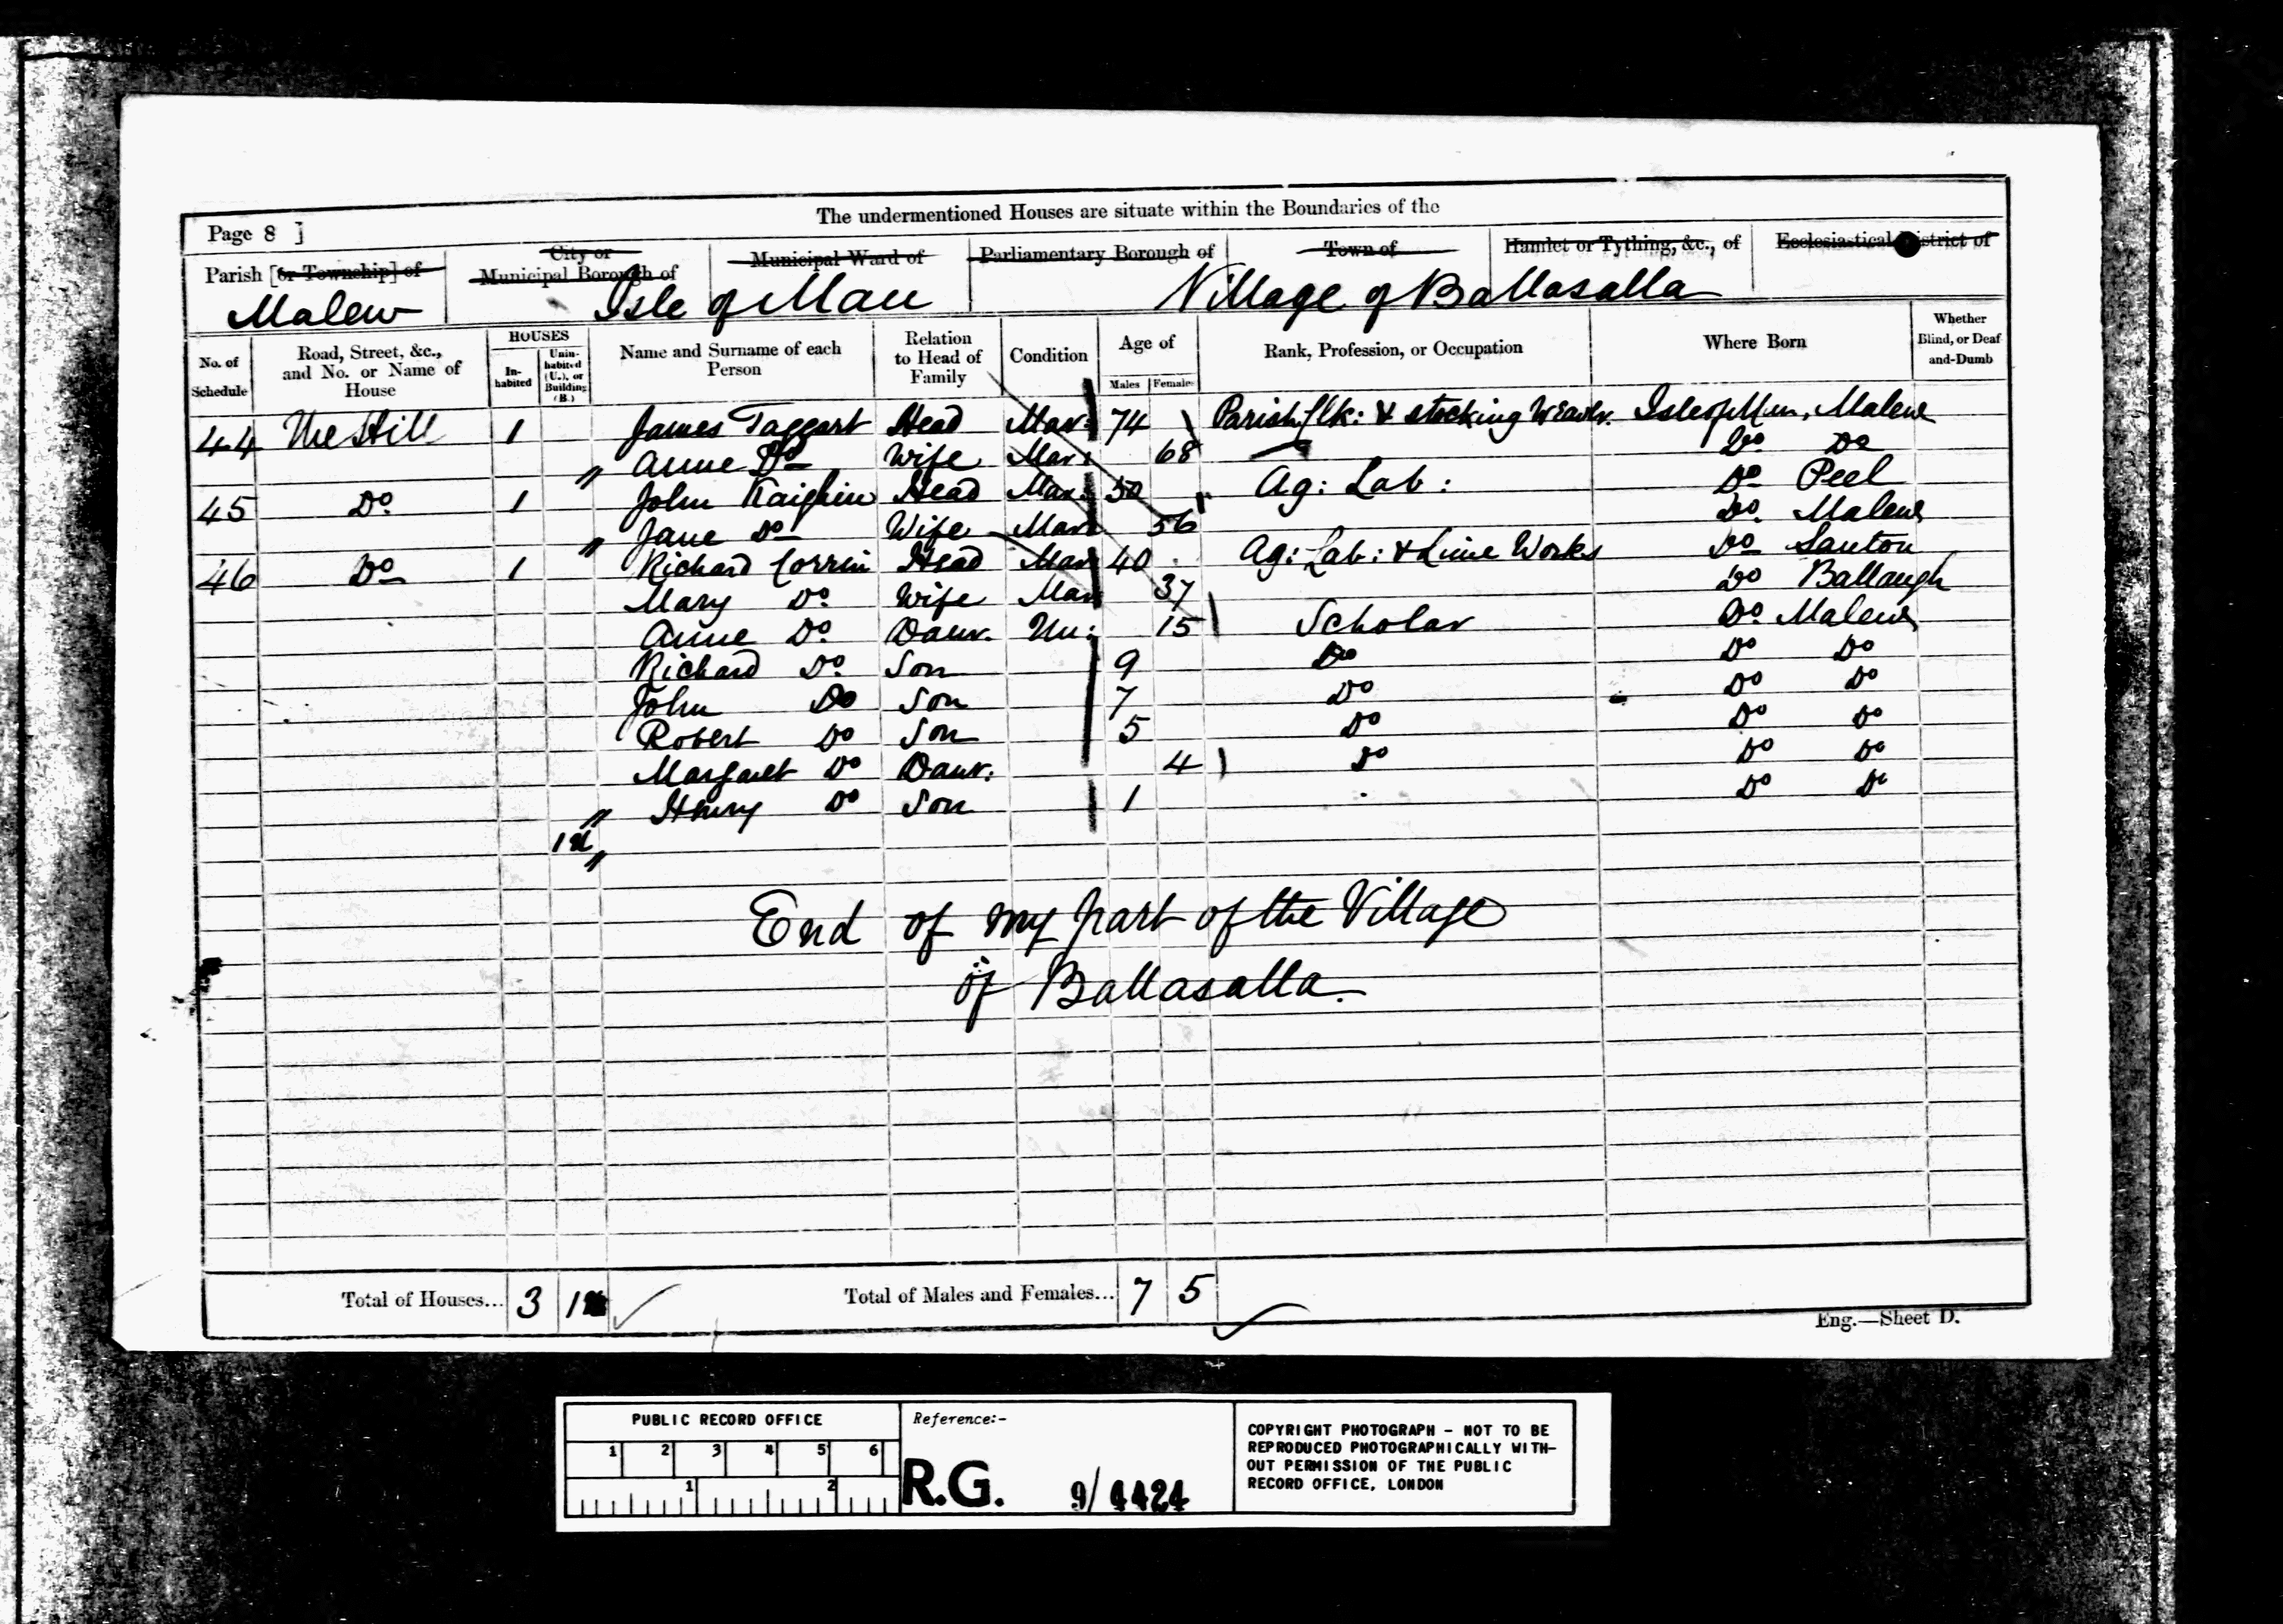 The undermentioned Houses are situate within the Boundaries of the
Page 8 ]
Parish [or Township] of
City or Municipal Borough of
Municipal Ward of
Parliamentary Borough of
Town of
Hamlet or Tything, &c., of
Ecclesiastical District of
Malew Isle of Man Village of Ballasalla
No. of Schedule
Road, Street, &c., and No. or Name of House
HOUSES
In-habited
Unin-habited (U.), or Building (B.)
Name and Surname of each Person
Relation to Head of Family
Condition
Age of
Males Females
Rank, Profession, or Occupation
Where Born
Whether Blind, or Deaf-and-Dumb
44 The Hill 1 James Taggart Head Mar: 74 Parish Clk: & stocking Weavr. Isle of Man, Malew
Anne Do Wife Mar: 68 Do Do
45 Do 1 John Kaighin Head Mar: 50 Ag: Lab: Do Peel
Jane Do Wife Mar 56 Do. Malew
46 Do 1 Richard Corrin Head Mar 40 Ag: Lab: & Lime Works Do Santon
Mary Do Wife Mar 37 Do Ballaugh
Anne Do Daur. Un: 15 Scholar Do Malew
Richard Do Son 9 Do Do Do
John Do Son 7 Do Do Do
Robert Do Son 5 Do Do Do
Margaret Do Daur: 4 Do Do Do
Henry Do Son 1 Do Do
End of my part of the Village
of Ballasalla.
Total of Houses... 3 1
Total of Males and Females... 7 5
Eng.—Sheet D.
PUBLIC RECORD OFFICE
1 2 3 4 5 6
1 2
Reference:-
R.G. 9/4424
COPYRIGHT PHOTOGRAPH - NOT TO BE
REPRODUCED PHOTOGRAPHICALLY WITH-
OUT PERMISSION OF THE PUBLIC
RECORD OFFICE, LONDON